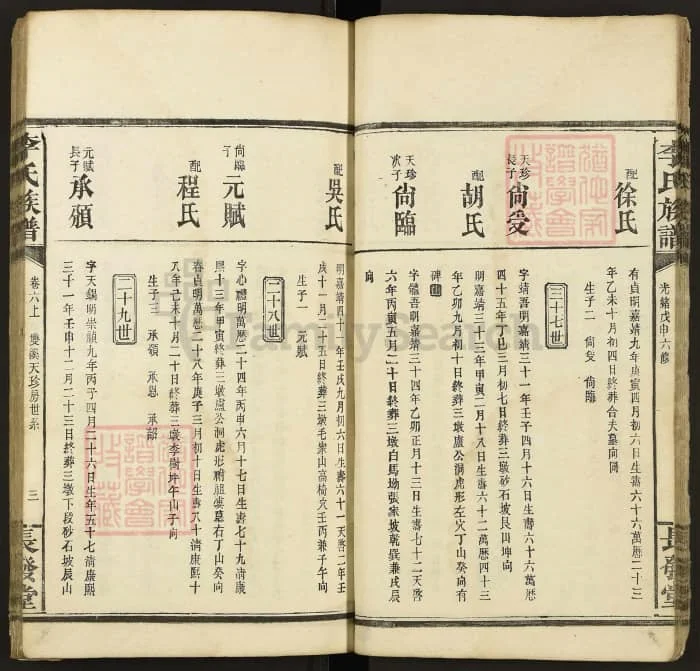 李氏族譜
光緒戊申六修
長發堂
配徐氏
有貞明嘉靖九年庚寅四月初六日生壽六十六萬厯二十三
年乙未十月初四日終葬合夫墓向同
生子二 尙受 尙臨
三十七世
天珍長子尙受
字靖吾明嘉靖三十一年壬子四月十六日生壽六十六萬厯
四十五年丁巳三月初七日終葬三墩砂石坡艮山坤向
配胡氏
明嘉靖三十三年甲寅二月十八日生壽六十二萬厯四十三
年乙卯九月初十日終葬三墩盧公澗虎形左穴丁山癸向有
碑
天珍次子尙臨
字體吾明嘉靖三十四年乙卯正月十三日生壽七十二天啓
六年丙寅五月二十日終葬三墩白馬坳張家坡乾巽兼戌辰
向
配吳氏
明嘉靖四十一年壬戌九月初六日生壽六十一天啓二年壬
戌十一月二十五日終葬三墩毛家山高椅穴壬丙兼子午向
生子一 元賦
二十八世
尙臨子元賦
字心體明萬厯二十四年丙申六月十七日生壽七十九淸康
熙十三年甲寅終葬三墩盧公澗虎形祔龍虞墓右丁山癸向
配程氏
春貞明萬厯二十八年庚子三月初十日生壽八十淸康熙十
八年己未十月二十日終葬三墩李樹坪午山子向
生子三 承碩 承恩 承詔
二十九世
元賦長子承碩
字天錫明崇禎九年丙子四月二十六日生年五十七淸康熙
三十一年壬申十二月二十三日終葬三墩下段砂石坡辰山
李氏族譜
卷六上 雙溪天珍房世系
三
長發堂
FamilySearch